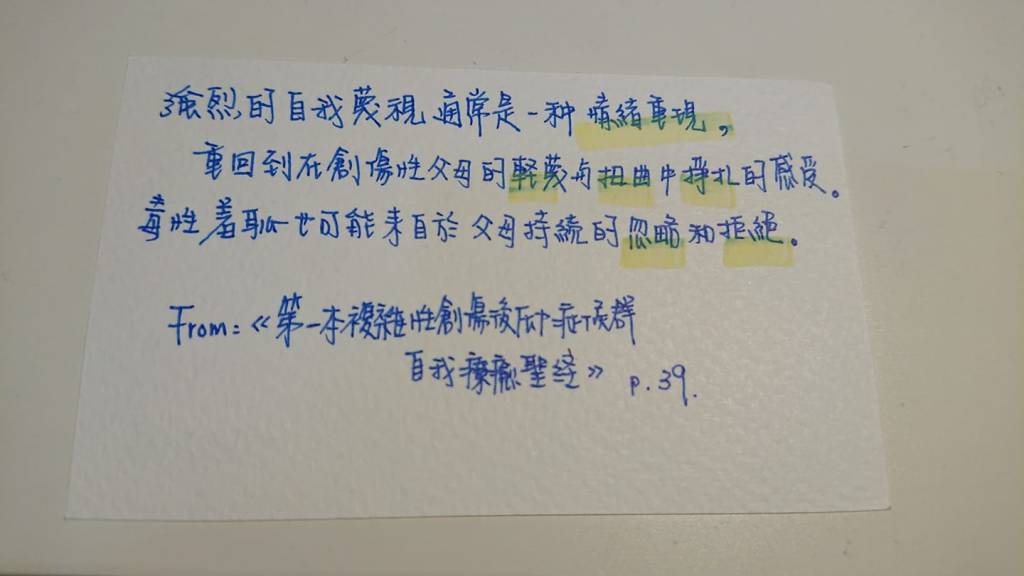 強烈的自我蔑視通常是一种情緒重現,
重回到在創傷性父母的輕蔑与扭曲中掙扎的感受。
毒性羞耻也可能来自於父母持続的忽略和拒絕。
From:《第一本複雜性創傷後壓力症候群
自我療癒聖経》 p.39.